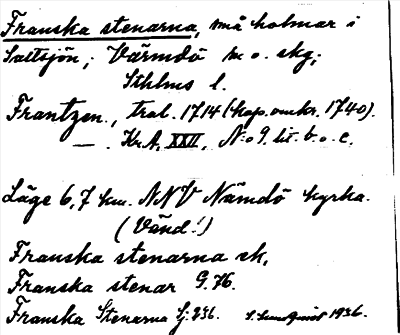 Franska stenarna, små holmar i
Saltsjön, Värmdö m. o. skg,
Sthlms l.
Frantzen, tral. 1714 (kop. omkr. 1740).
— . Kr. A. XXII, N:o 9. lit. b. o. c.
Läge 6,7 km. NNV Nämdö kyrka.
(Vänd!)
Franska stenarna ek,
Franska stenar G.76.
Franska Stenarna Sj. 236. 1936.